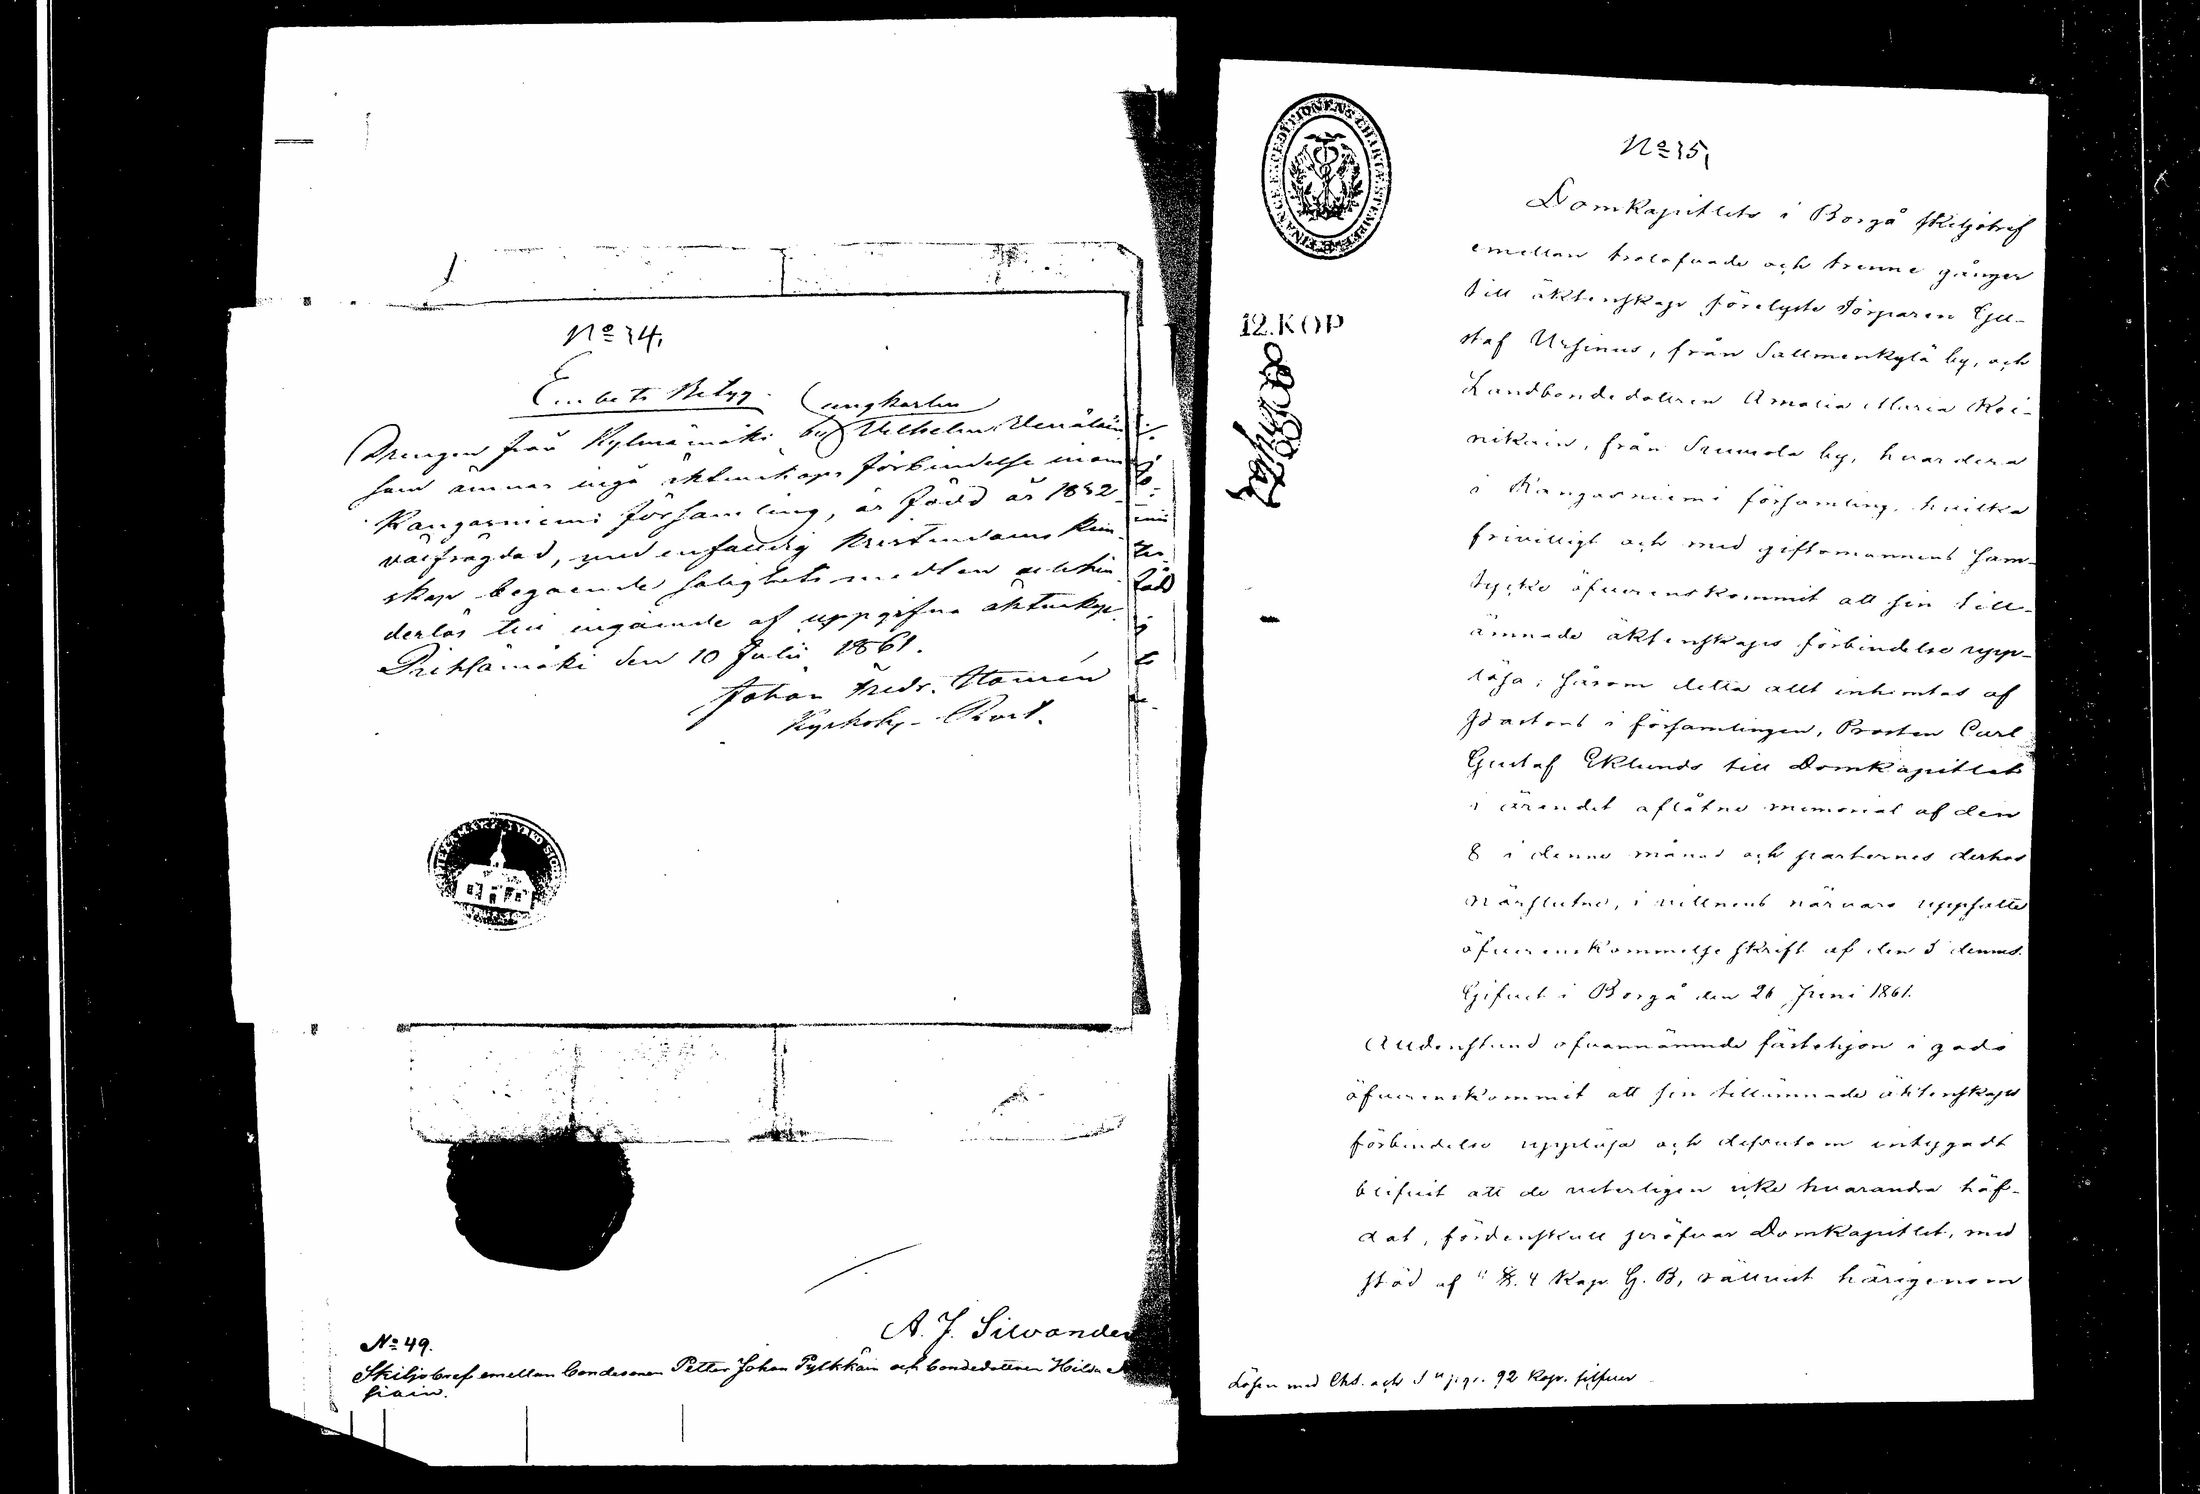 No 34.
Embets Betyg.
(ungkarlen
Drengen från Kylmämäki by Vilhelm Venäläin
som ämnar ingå äktenskaps förbindelse inom
Kangasniemi församling, är född år 1832
välfrägdad, med enfaldig kristendoms kun-
skap begående salighetsmedlen och hin-
derlös till ingående af uppgifna äktenskap.
Pieksämäki den 10 Julii 1861.
Johan Fredr.
Kyrkoh.
A. J. Silvander
No 49.
Skiljobref emellan bondesonen Petter Johan Pylkkäin och bondedottren Hilda
siain.
FINANCE EXPEDITIONENS CHARTÆ STEMPEL
12. KOP
No 35,
Domkapitlets i Borgå skiljobref
emellan trolofvade och trenne gånger
till äktenskap förelyste Torparen Gu-
staf Ursinus, från Salmenkylä by, och
Landbondedottren Amalia Maria Rei-
nikain, från Suumola by, hvardera
i Kangasniemi församling, hvilka
frivilligt och med giftomannens sam-
tycke öfverenskommit att sin till-
ämnade äktenskaps förbindelse upp-
lösa; såsom detta allt inhemtas af
Pastors i församlingen, Prosten Carl
Gustaf Eklunds till Domkapitlet
i ärendet aflåtne memorial af den
8 i denne månad och parternes derhos
närslutne, i vittnens närvaro uppsatte
öfverenskommelse skrift af den 3 dennes.
Gifvet i Borgå den 26 Juni 1861.
Alldenstund ofvannämnde fästehjon i godo
öfverenskommit att sin tillämnade äktenskaps
förbindelse upplösa och dessutom intygadt
blifvit att de veterligen icke hvarandra häf-
dat, fördenskull pröfvar Domkapitlet, med
stöd af §. 4 Kap. G. B, rättvist härigenom
Lösen med Chs. och 92 Kop. silfver